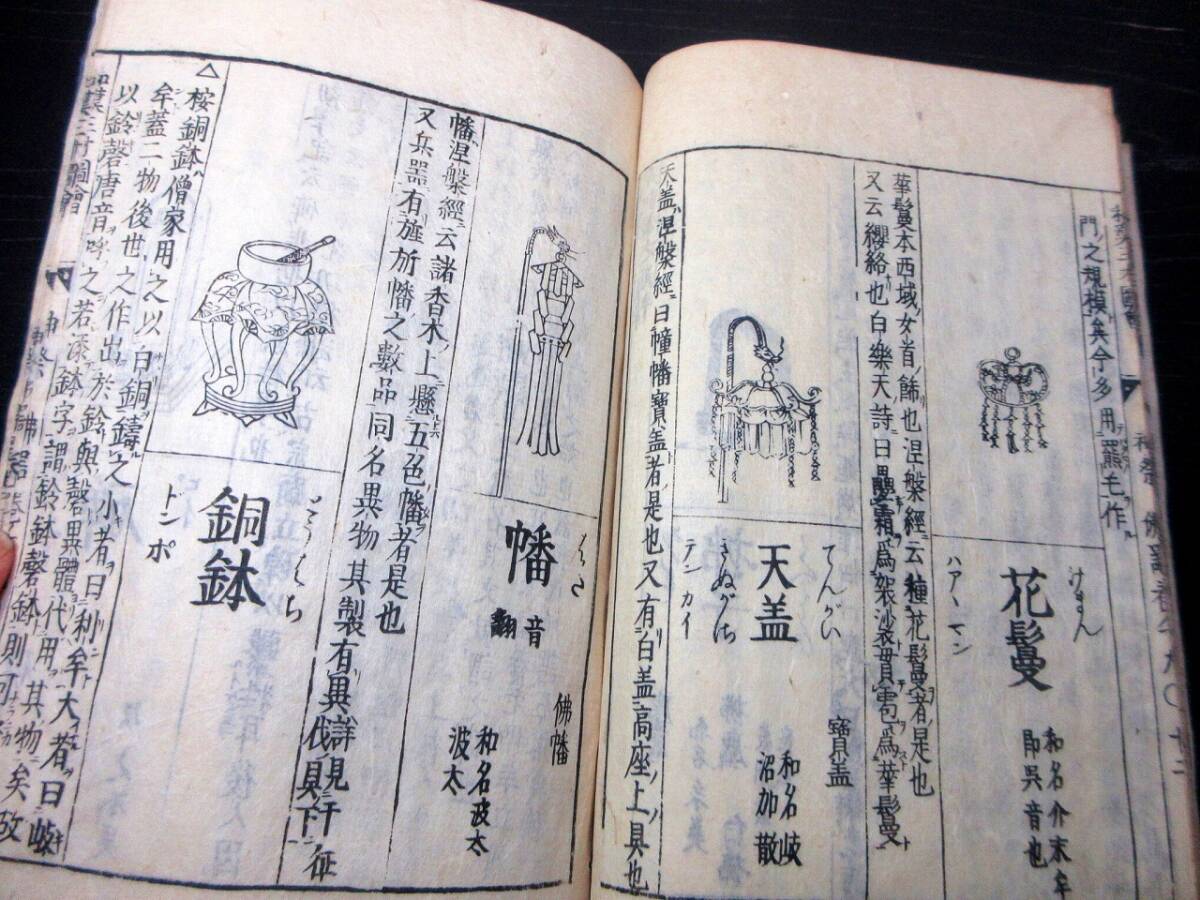 門之規模矣今多用羅毛作
けまん
花鬘
ハアヽマン
和名介末牟
即呉音也
華鬘本西域女首飾也涅槃經云種種花鬘者是也
又云纓絡也白樂天詩曰
爲架沙
雹爲華鬘
てんがい
天盖
きぬがさ
テンカイ
寳盖
和名岐
沼加散
天盖涅槃經曰幢幡寳盖者是也又有白盖高座上具也
はた
幡
音
翻
佛幡
和名波太
波太
幡涅槃經云諸香木上懸五色幡者是也
又兵器有旌旂幡之數品同名異物其製有異詳見于征伐具下
どうばち
銅鉢
ドンポ
△桉銅鉢僧家用之以白銅鑄之小者曰利牟大者曰
牟蓋二物後世之作出於鈴與磬異體代用其物矣
以鈴磬唐音呼之若添鉢字謂鈴鉢磬鉢則可